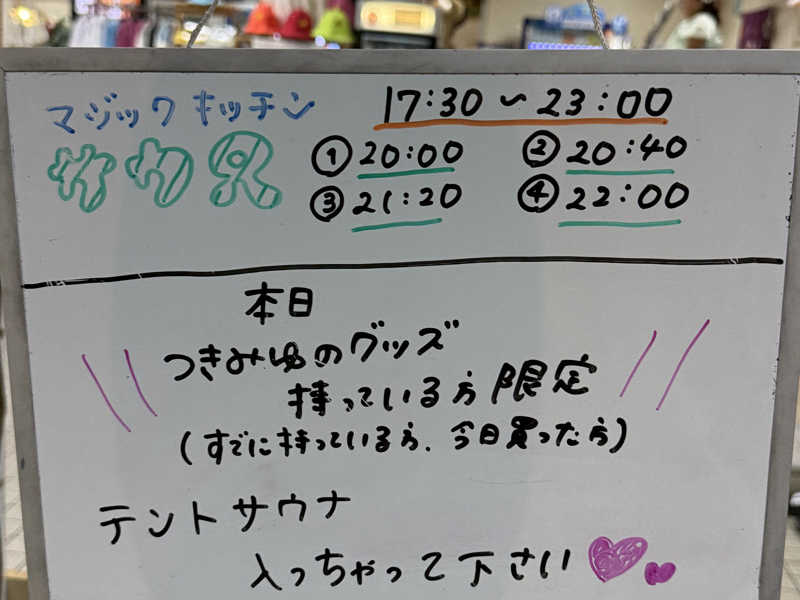 マジックキッチン
サカス
17:30～23:00
①20:00 ②20:40
③21:20 ④22:00
本日
つきみゆのグッズ
持っている方限定
(すでに持っている方、今日買った方)
テントサウナ
入っちゃって下さい